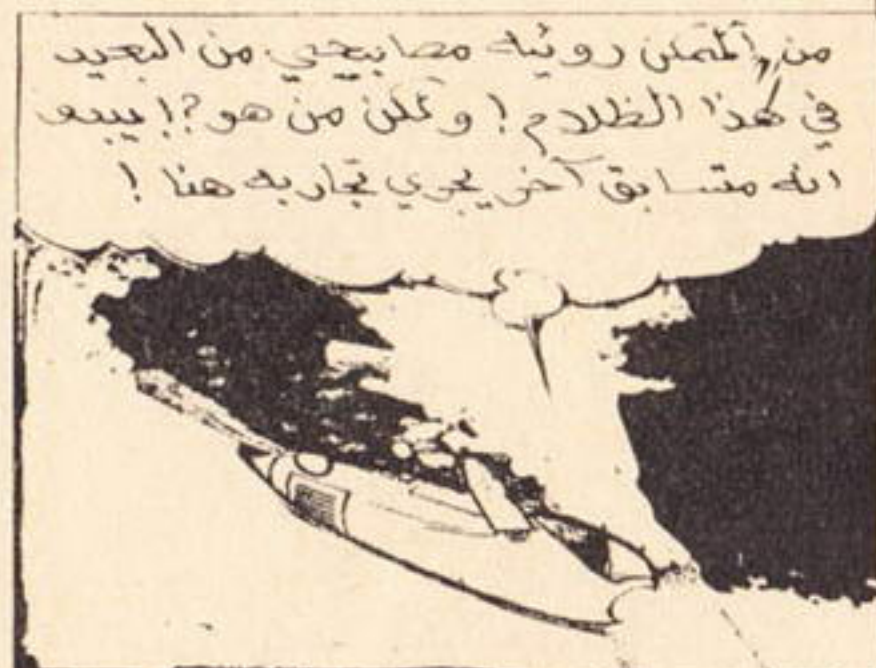 من الممكن روئية مصابيحي من البعيد
في هذا الظلام ! ولكن من هو ?! يبدو
انه متسابق آخر يجري تجاربه هنا !